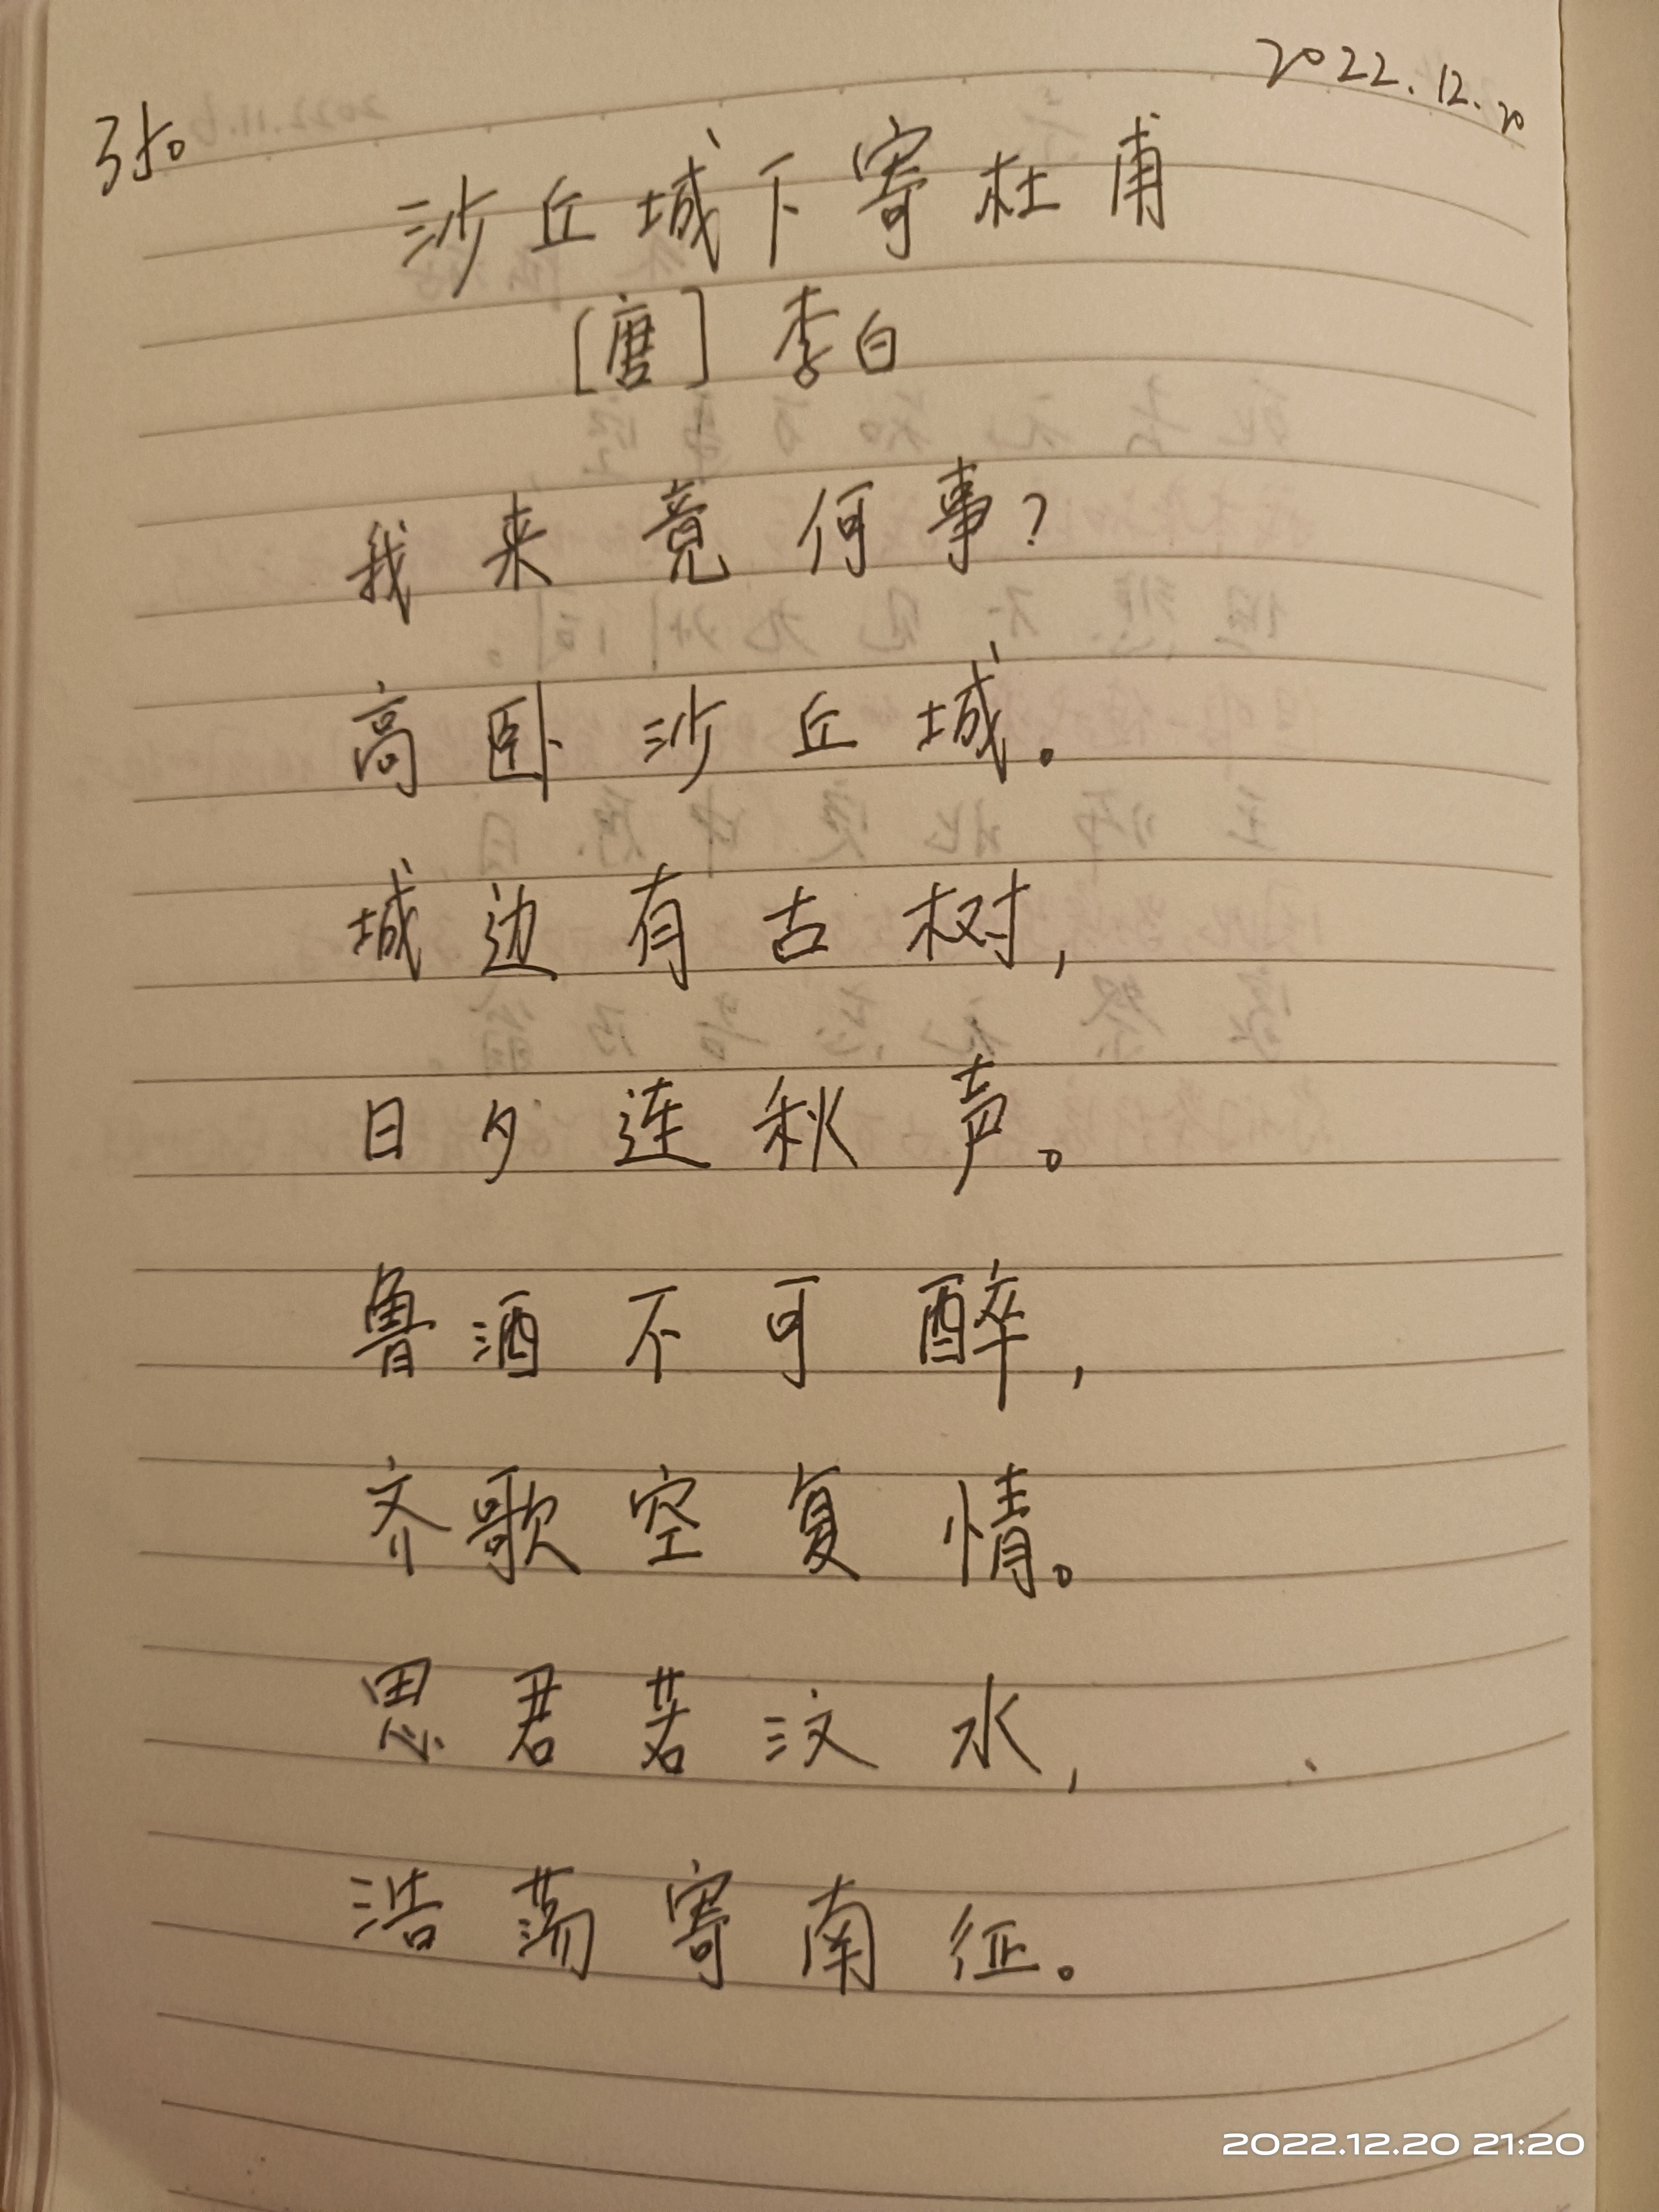 2022.12.20
350
沙丘城下寄杜甫
[唐] 李白
我来竟何事?
高卧沙丘城。
城边有古树,
日夕连秋声。
鲁酒不可醉,
齐歌空复情。
思君若汶水,
浩荡寄南征。
2022.12.20 21:20